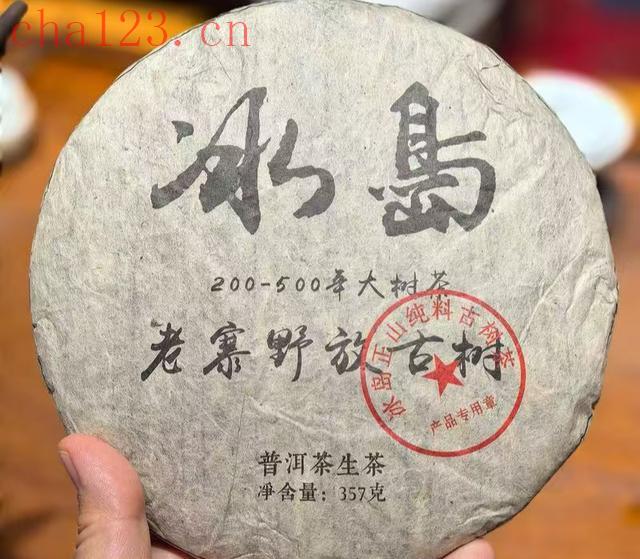 cha123.cn
冰島
200-500年大树茶
老寨野放古树
冰岛正山纯料古树茶
产品专用章
普洱茶生茶
净含量：357克